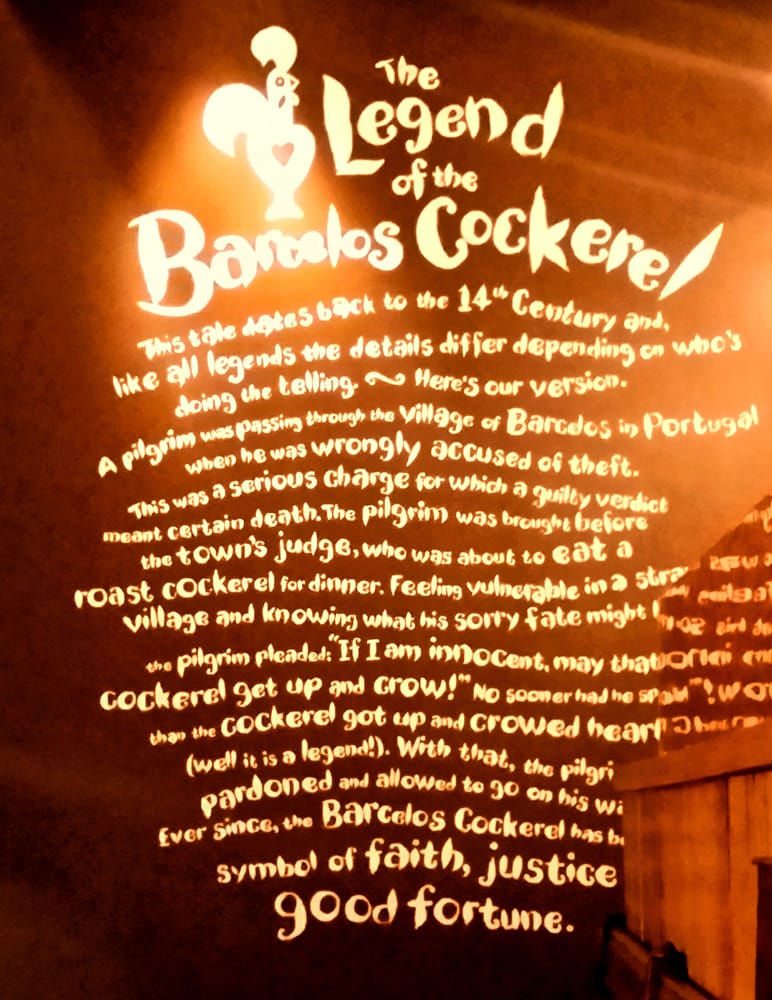 The
Legend
of the
Barcelos Cockerel
This tale dates back to the 14th Century and,
like all legends the details differ depending on who's
doing the telling. ~ Here's our version.
A pilgrim was passing through the village of Barcelos in Portugal
when he was wrongly accused of theft.
This was a serious charge for which a guilty verdict
meant certain death. The pilgrim was brought before
the town's judge, who was about to eat a
roast cockerel for dinner. Feeling vulnerable in a stra
village and knowing what his sorry fate might
the pilgrim pleaded: "If I am innocent, may that
cockerel get up and crow!" No sooner had he spo
than the cockerel got up and crowed heart
(well it is a legend!). With that, the pilgri
pardoned and allowed to go on his wa
Ever since, the Barcelos Cockerel has be
symbol of faith, justice
good fortune.